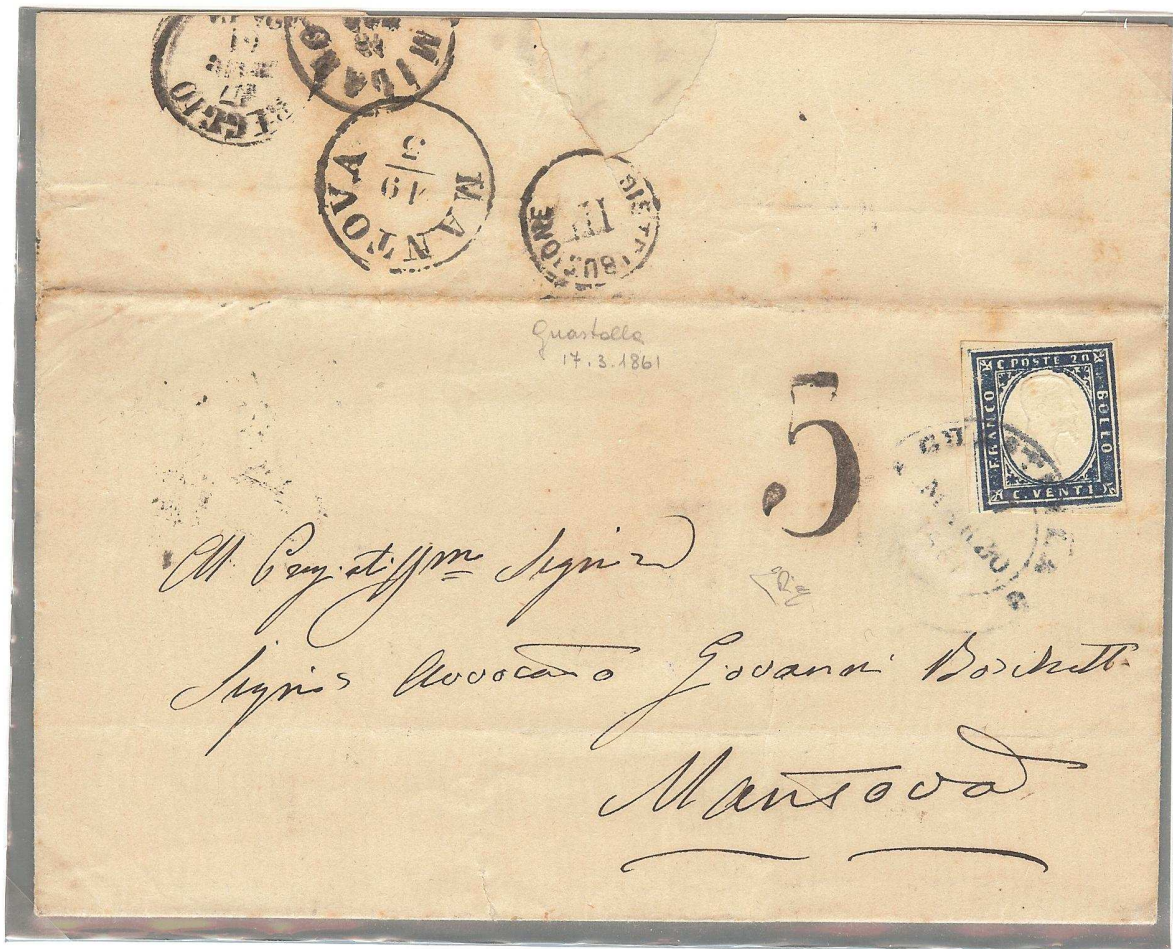 REGGIO
17
MILANO
MANTOVA
19
3
DISTRIBUZIONE
III
Guastalla
17.3.1861
C. POSTE 20
FRANCO
BOLLO
C. VENTI
5
GUASTALLA
MARZO
Al Preg.atissmo Signor
Signor Avvocato Giovanni Boschetti
Mantova